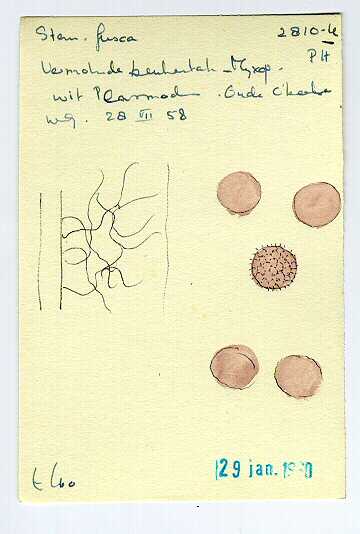 Stem. fusca 2810-b
PH
Vermolmde beukentak - Myxop.
wit Plasmodi. Oude
weg. 28 VII 58
29 jan. 1960